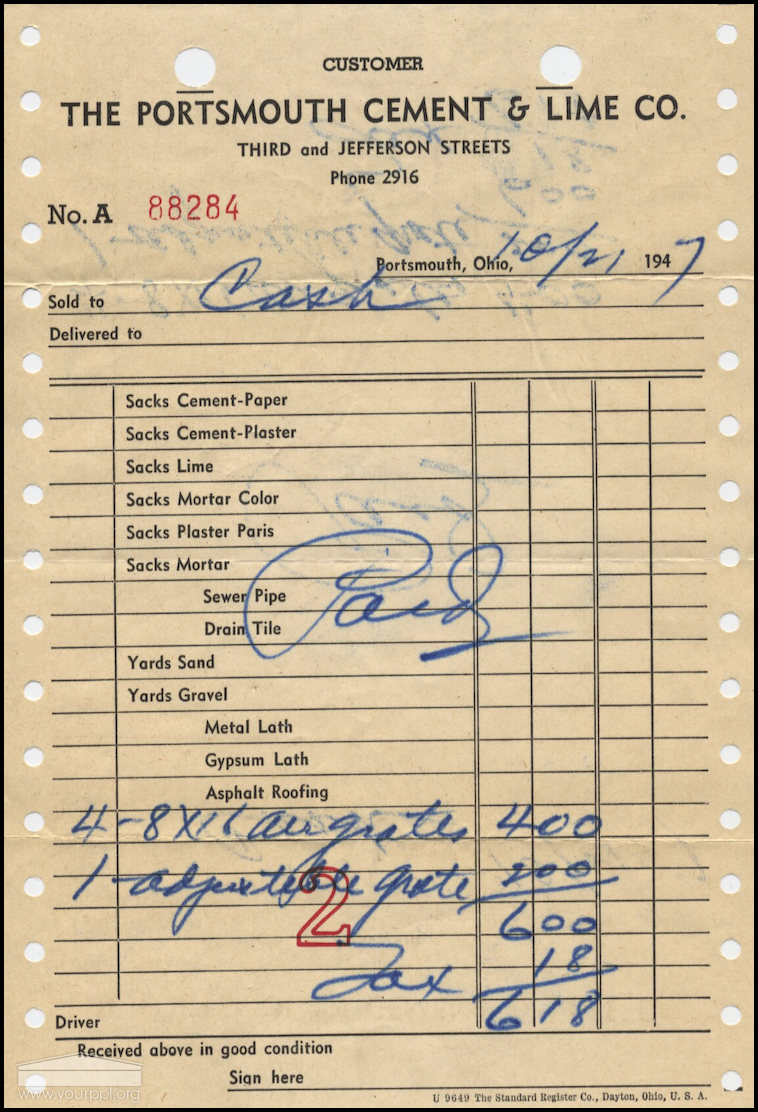 CUSTOMER
THE PORTSMOUTH CEMENT & LIME CO.
THIRD and JEFFERSON STREETS
Phone 2916
No. A 88284
Portsmouth, Ohio, 10/21 1947
Sold to Cash
Delivered to
Sacks Cement-Paper
Sacks Cement-Plaster
Sacks Lime
Sacks Mortar Color
Sacks Plaster Paris
Sacks Mortar
Sewer Pipe
Paid
Drain Tile
Yards Sand
Yards Gravel
Metal Lath
Gypsum Lath
Asphalt Roofing
4-8X16 air grates 400
1-adjustable grate 200
2
600
18
Tax
618
Driver
Received above in good condition
Sign here
www.yourppl.org
U 9649 The Standard Register Co., Dayton, Ohio, U. S. A.